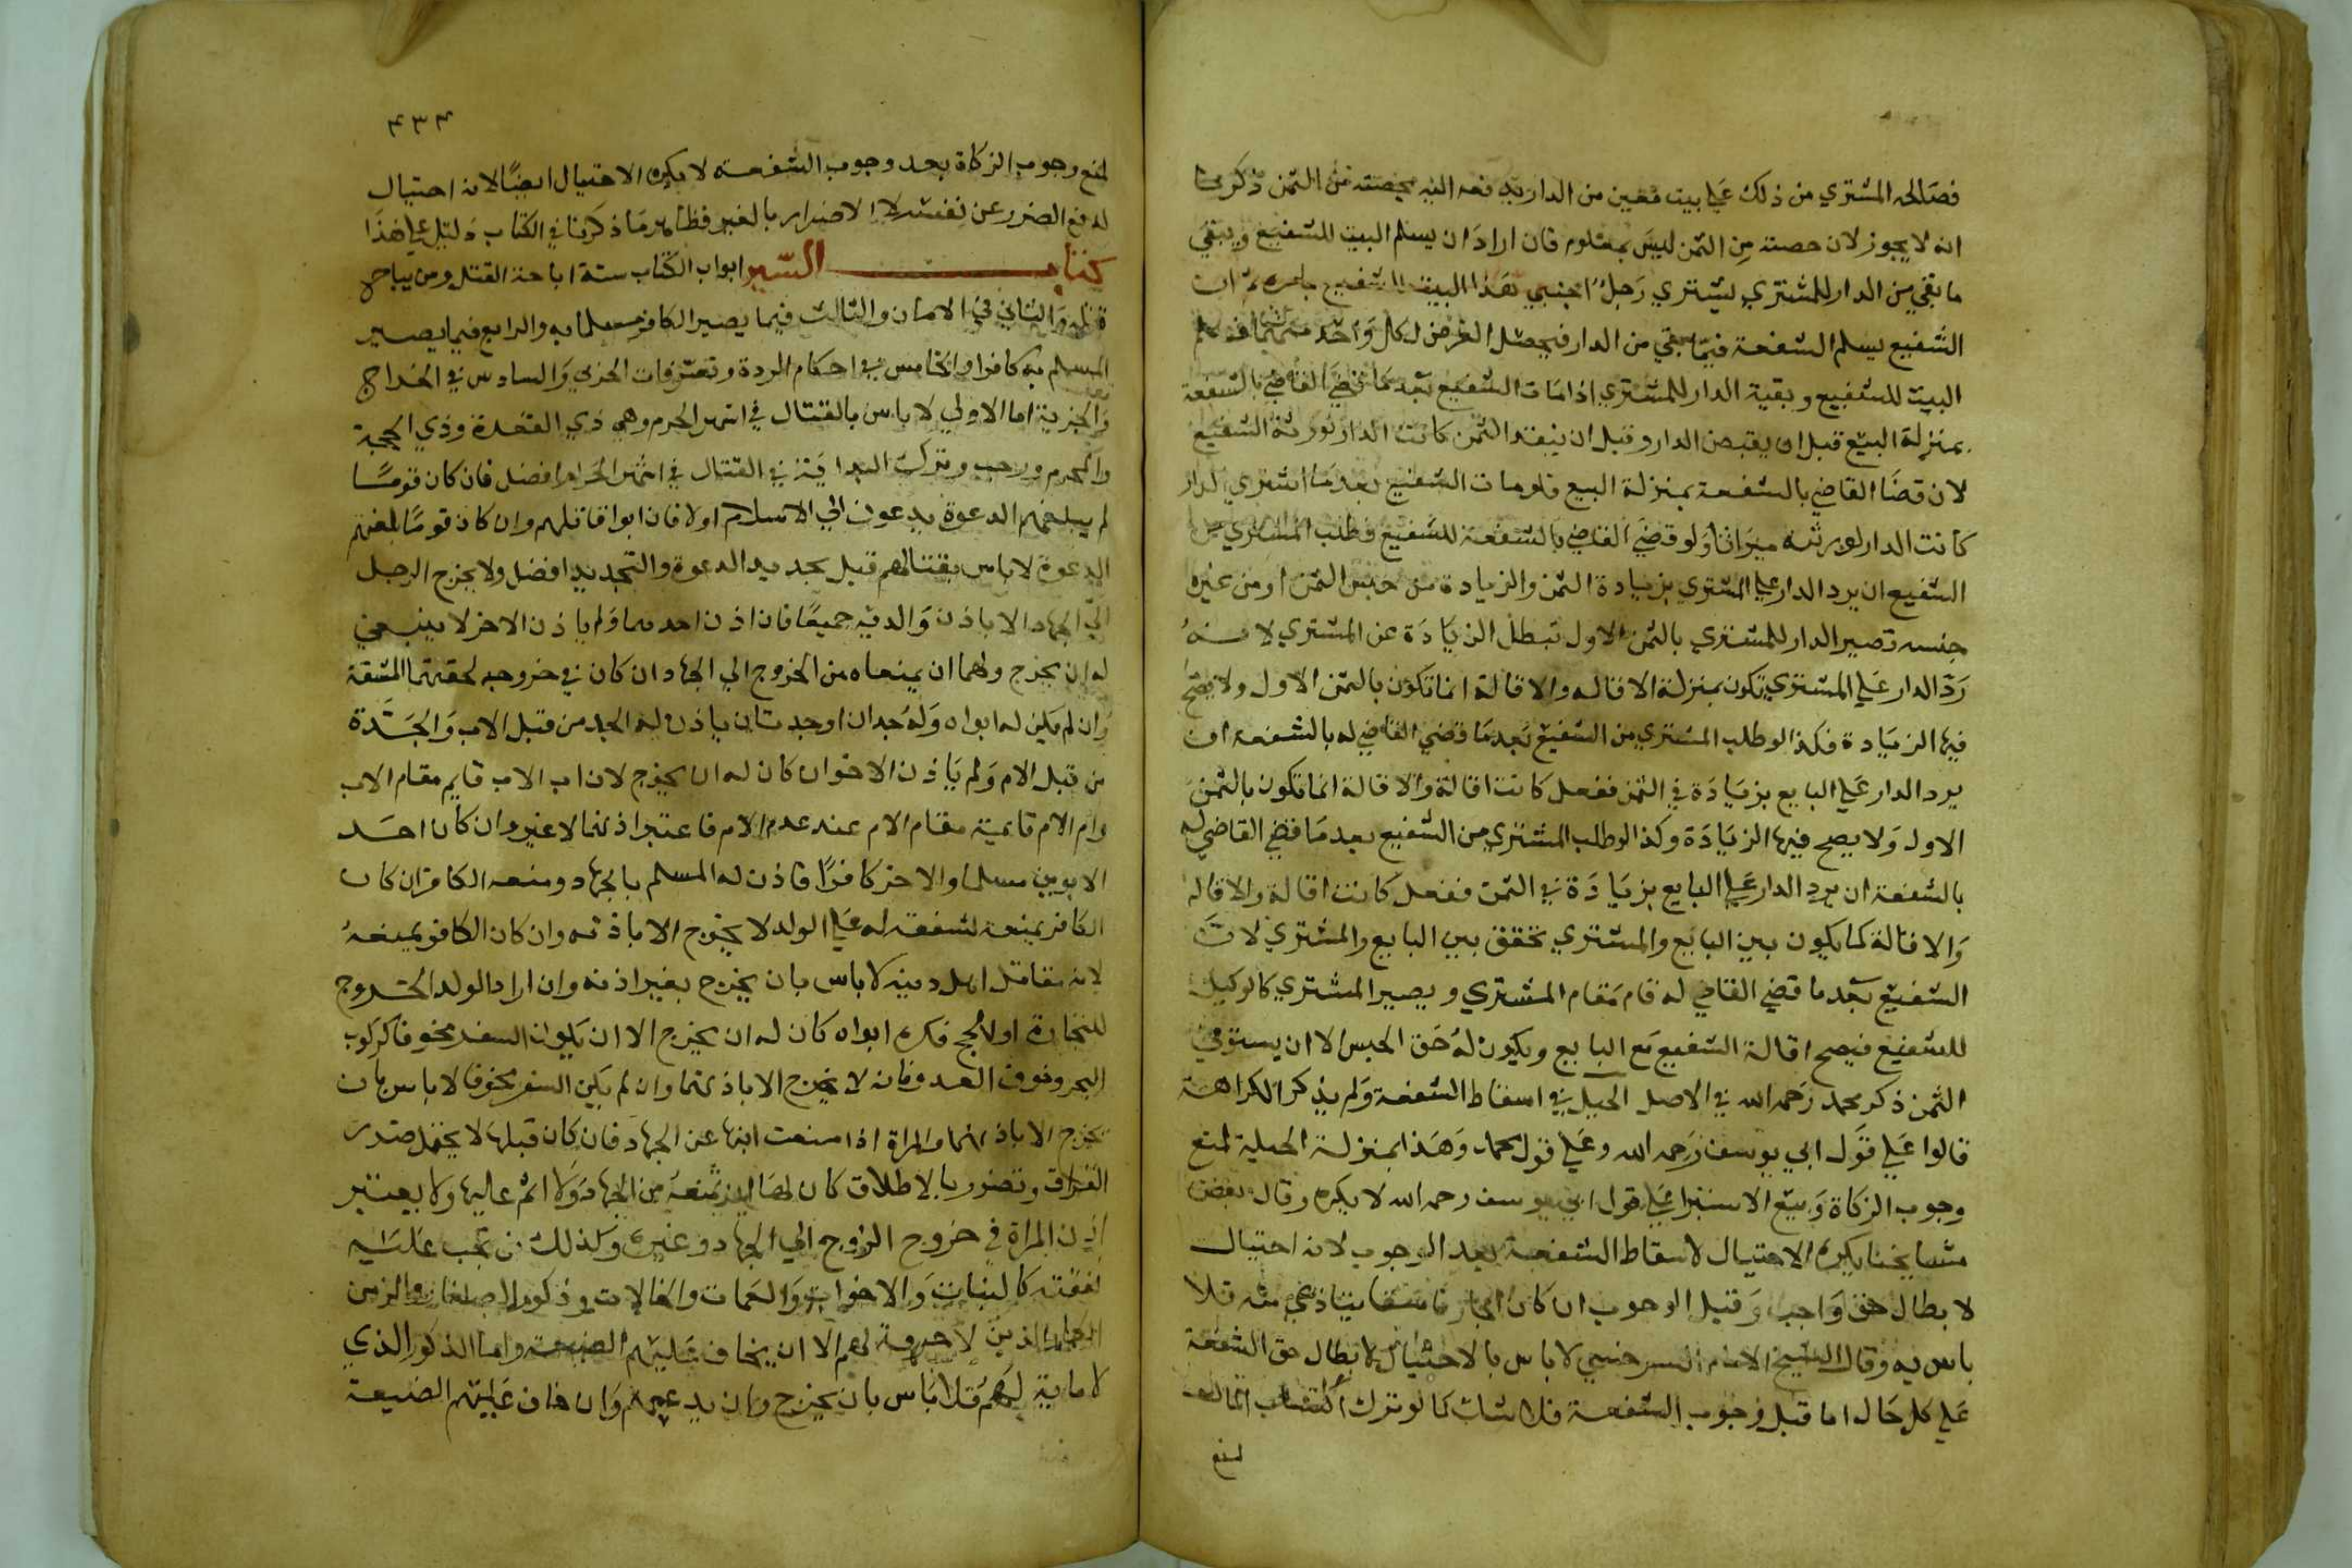 فصالحه المشتري من ذلك علي بيت معين من الدار يدفعه اليه بحصته من الثمن ذكر
انه لا يجوز لان حصته من الثمن ليس بمعلوم فان اراد ان يسلم البيت للشفيع ويبقي
ما بقي من الدار للمشتري يشتري رجل اجنبي هذا البيت للشفيع بامره ثم ان
الشفيع يسلم الشفعة فيما بقي من الدار فيحصل الغرض لكل واحد منهما
البيت للشفيع وبقية الدار للمشتري اذا مات الشفيع بعد ما قضي القاضي بالشفعة
بمنزلة البيع قبل ان يقبض الدار وقبل ان ينقد الثمن كانت الدار لورثة الشفيع
لان قضا القاضي بالشفعة بمنزلة البيع ولو مات الشفيع بعد ما اشتري الدار
كانت الدار لورثته ميراثا ولو قضي القاضي بالشفعة للشفيع فطلب المشتري من
الشفيع ان يرد الدار علي المشتري بزيادة الثمن والزيادة من جنس الثمن او من غير
جنسه تصير الدار للمشتري بالثمن الاول تبطل الزيادة عن المشتري لانه
رد الدار علي المشتري تكون بمنزلة الاقاله والاقالة انما تكون بالثمن الاول ولا يصح
فيها الزيادة فكذا لو طلب المشتري من الشفيع بعد ما قضي القاضي له بالشفعة ان
يرد الدار علي البايع بزيادة في الثمن ففعل كانت اقالة والاقالة انما تكون بالثمن
الاول ولا يصح فيها الزيادة وكذا لو طلب المشتري من الشفيع بعد ما قضي القاضي له
بالشفعة ان يرد الدار علي البايع بزيادة في الثمن ففعل كانت اقالة والاقاله
والاقالة كما يكون بين البايع والمشتري تحقق بين البايع والمشتري لان
الشفيع بعد ما قضي القاضي له قام مقام المشتري ويصير المشتري كالوكيل
للشفيع فيصح اقالة الشفيع مع البايع ويكون له حق الحبس الا ان يستوفي
الثمن ذكر محمد رحمه الله في الاصل الحيل في اسقاط الشفعة ولم يذكر الكراهة
قالوا علي قول ابي يوسف رحمه الله وعلي قول محمد وهذا بمنزلة الحيلة لمنع
وجوب الزكاة وبيع الاستبرا علي قول ابي يوسف رحمه الله لا يكره وقال بعض
مشايخنا يكره الاحتيال لاسقاط الشفعة بعد الوجوب لانه احتيال
لابطال حق واجب وقبل الوجوب ان كان الجار فاسقا يتاذي منه فلا
باس به وقال الشيخ الامام السرخسي لا باس بالاحتيال لابطال حق الشفعة
علي كل حال اما قبل وجوب الشفعة فلا شك كما لو ترك اكتساب المال
لمنع
٤٣٤
لمنع وجوب الزكاة بعد وجوب الشفعة لا يكره الاحتيال ايضا لانه احتيال
لدفع الضرر عن نفسه لا الاضرار بالغير فظاهر ما ذكرنا في الكتاب دليل علي هذا
كتاب السير ابواب الكتاب ستة اباحة القتل ومن يباح
قتله والثاني في الامان والثالث فيما يصير الكافر مسلما به والرابع فيما يصير
المسلم به كافرا والخامس في احكام الردة وتصرفات الحربي والسادس في الخراج
والجزية اما الاولي لا باس بالقتال في اشهر الحرم وهي ذي القعدة وذي الحجة
والمحرم ورجب وترك البداية في القتال في اشهر الحرام افضل فان كان قوما
لم يبلغهم الدعوة يدعون الي الاسلام اولا فان ابوا قاتلهم وان كان قوما بلغهم
الدعوة لا باس بقتالهم قبل تجديد الدعوة والتجديد افضل ولا يخرج الرجل
الي الجهاد الا باذن والديه جميعا فان اذن احدهما ولم ياذن الاخر لا ينبغي
له ان يخرج ولهما ان يمنعاه من الخروج الي الجهاد ان كان في خروجه لحقتهما المشقة
وان لم يكن له ابواه وله جدان او جدتان ياذن له الجد من قبل الاب والجدة
من قبل الام ولم ياذن الاخوان كان له ان يخرج لان اب الاب قايم مقام الاب
وام الام قايمة مقام الام عند عدم الام فاعتبر اذنهما لا غير وان كان احد
الابوين مسلما والاخر كافرا فاذن له المسلم بالجهاد ومنعه الكافر ان كان
الكافر يمنعه لشفقه له علي الولد لا يخرج الا باذنه وان كان الكافر يمنعه
لانه يقاتل اهل دينه لا باس بان يخرج بغير اذنه وان اراد الولد الخروج
للتجارة او لحج فكره ابواه كان له ان يخرج الا ان يكون السفر مخوفا كركوب
البحر وخوف العدو فانه لا يخرج الا باذنهما وان لم يكن السفر مخوفا لا باس بان
يخرج الا باذنهما والمراة اذا منعت ابنها عن الجهاد فان كان قبلها لا يحتمل ضرر
الفراق وتضرر بالاطلاق كان لها ان تمنعه من الجهاد ولا اثم عليها ولا يعتبر
اذن المراة في خروج الزوج الي الجهاد وغيره وكذلك من تجب عليه
نفقته كالبنات والاخوات والعمات والخالات وذكور الصغار والزمن
الذين لا حرفة لهم الا ان يخاف عليهم الضيعة واما الذكور الذي
لا مانة لهم فلا باس بان يخرج وان يدعهم وان خاف عليهم الضيعة